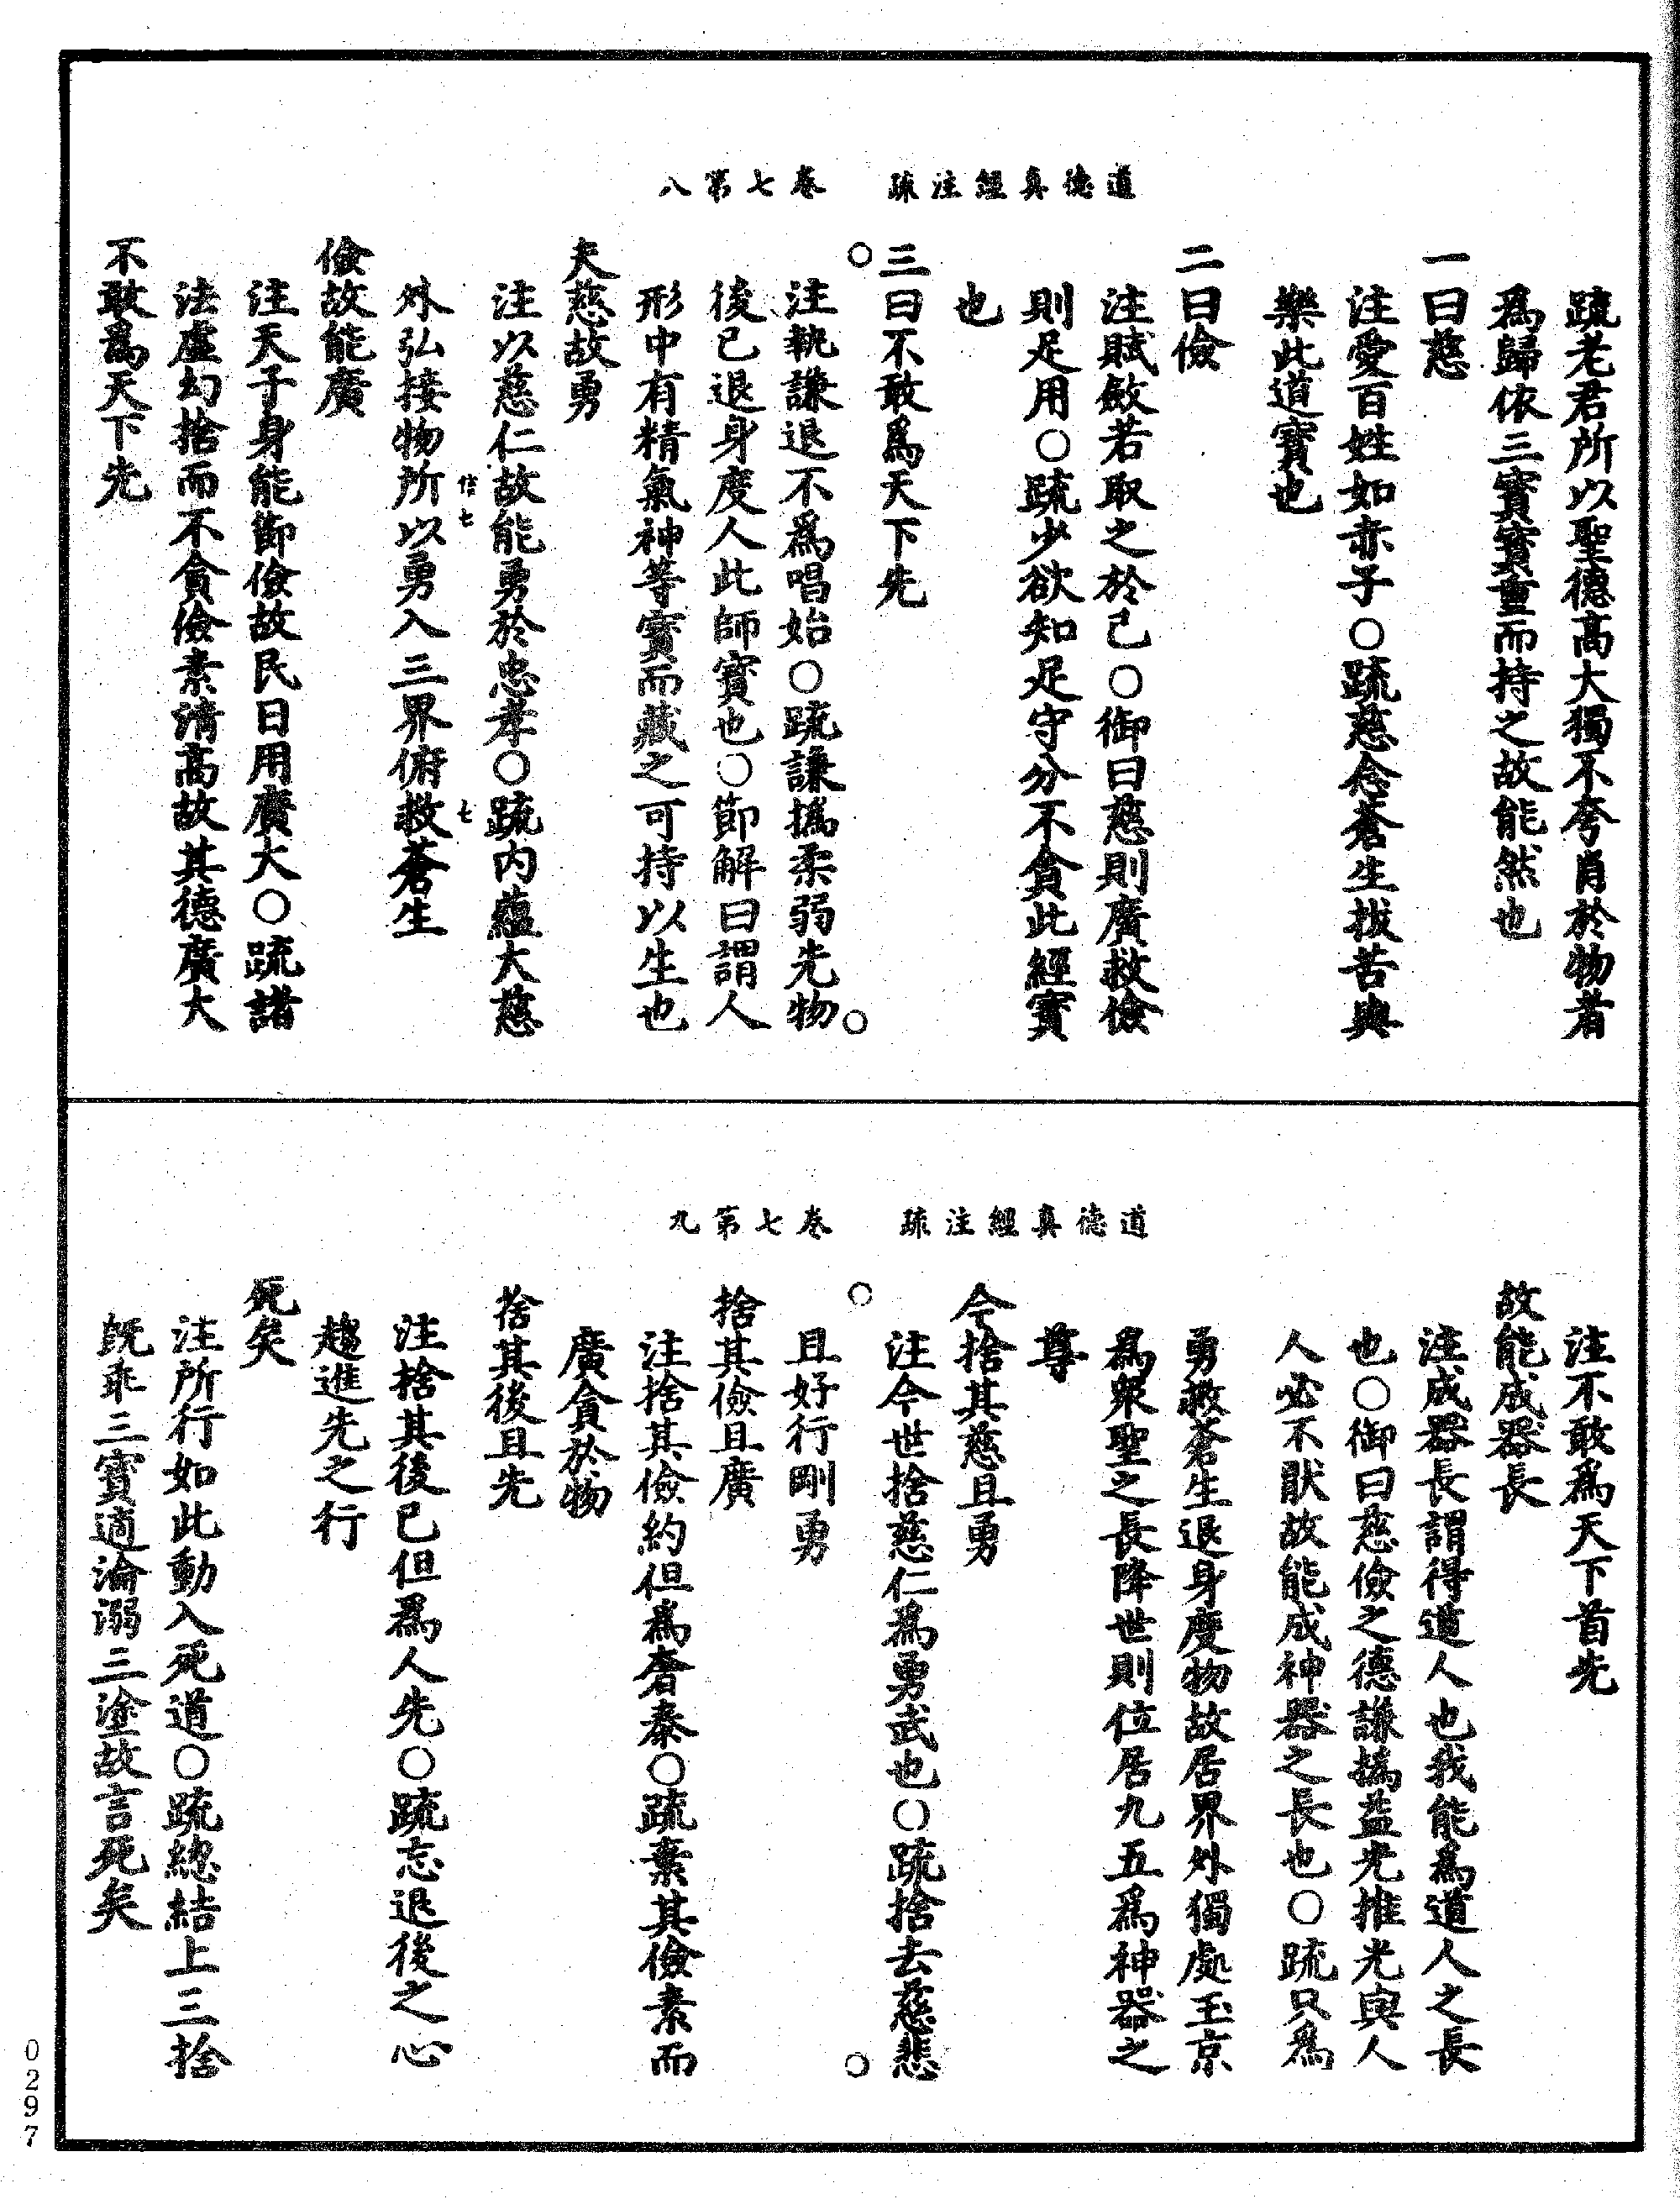 道德真經注疏　卷七第八
䟽老君所以聖德高大獨不夸肖於物者
爲歸依三寶寶重而持之故能然也
一曰慈
注愛百姓如赤子○䟽慈念蒼生拔苦與
樂此道寶也
二曰儉
注賦斂若取之於己○御曰慈則廣救儉
則足用○䟽少欲知足守分不貪此經寶
也
三曰不敢爲天下先
注執謙退不爲唱始○䟽謙撝柔弱先物
後已退身度人此師寶也○節解曰謂人
形中有精氣神等寶而藏之可持以生也
夫慈故勇
注以慈仁故能勇於忠孝○䟽内蘊大慈
信七　七
外弘接物所以勇入三界俯救蒼生
儉故能廣
注天子身能節儉故民日用廣大○䟽諸
法虛幻捨而不貪儉素清高故其德廣大
不敢爲天下先
道德真經注疏　卷七第九
注不敢爲天下首先
故能成器長
注成器長謂得道人也我能爲道人之長
也○御曰慈儉之德謙撝益光推光與人
人必不猒故能成神器之長也○䟽只爲
勇救蒼生退身度物故居界外獨處玉京
爲衆聖之長降世則位居九五爲神器之
尊
今捨其慈且勇
注今世捨慈仁爲勇武也○䟽捨去慈悲
且好行剛勇
捨其儉且廣
注捨其儉約但爲奢泰○䟽棄其儉素而
廣貪於物
捨其後且先
注捨其後已但爲人先○䟽忘退後之心
趍進先之行
死矣
注所行如此動入死道○䟽總結上三捨
旣乖三寶適淪溺三塗故言死矣
0297